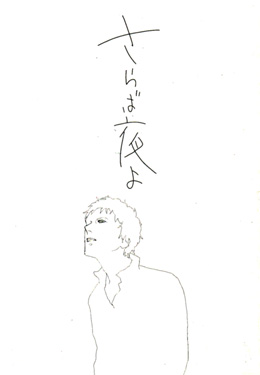 さらば夜よ